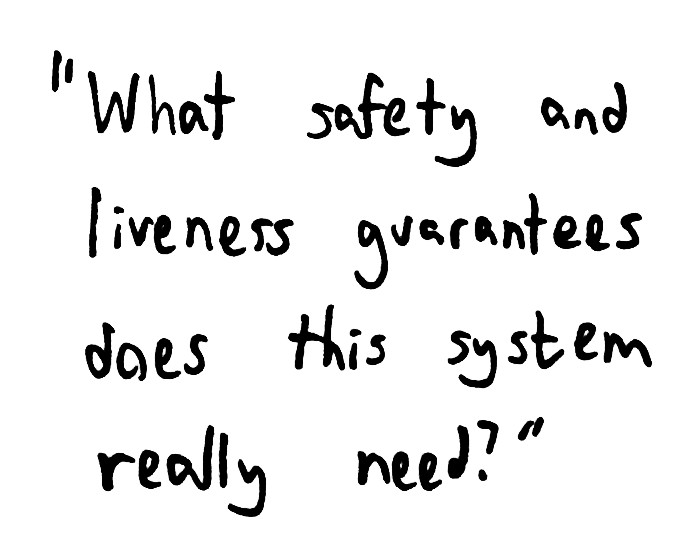 "What safety and
liveness guarantees
does this system
really need?"